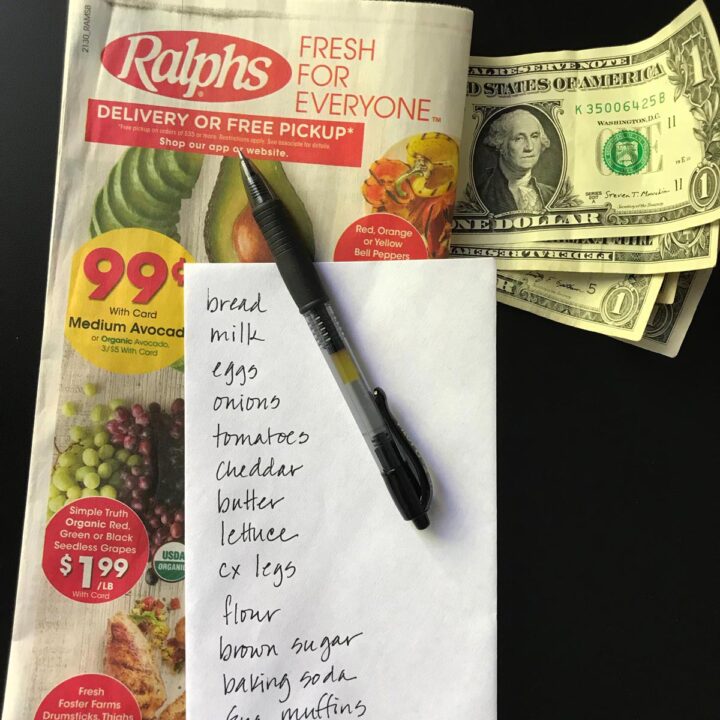 2130_RAMSB
Ralphs
FRESH
FOR
EVERYONE™
DELIVERY OR FREE PICKUP*
*Free pickup on orders of $35 or more. Restrictions apply. See associate for details.
Shop our app or website.
Red, Orange
or Yellow
Bell Peppers
99¢
With Card
Medium Avocad
or Organic Avocado,
3/$5 With Card
Simple Truth
Organic Red,
Green or Black
Seedless Grapes
$1.99
/LB
With Card
USDA
ORGANIC
Fresh
Foster Farms
Drumsticks, Thighs
bread
milk
eggs
onions
tomatoes
cheddar
butter
lettuce
cx legs
flour
brown sugar
baking soda
muffins
RAL RESERVE NOTE
D STATES OF AMERICA
K 35005425 B
WASHINGTON, D.C.
11
ONE
SERIES
2017
A
11
ONE DOLLAR
1
FEDERAL RESERVE
5
1